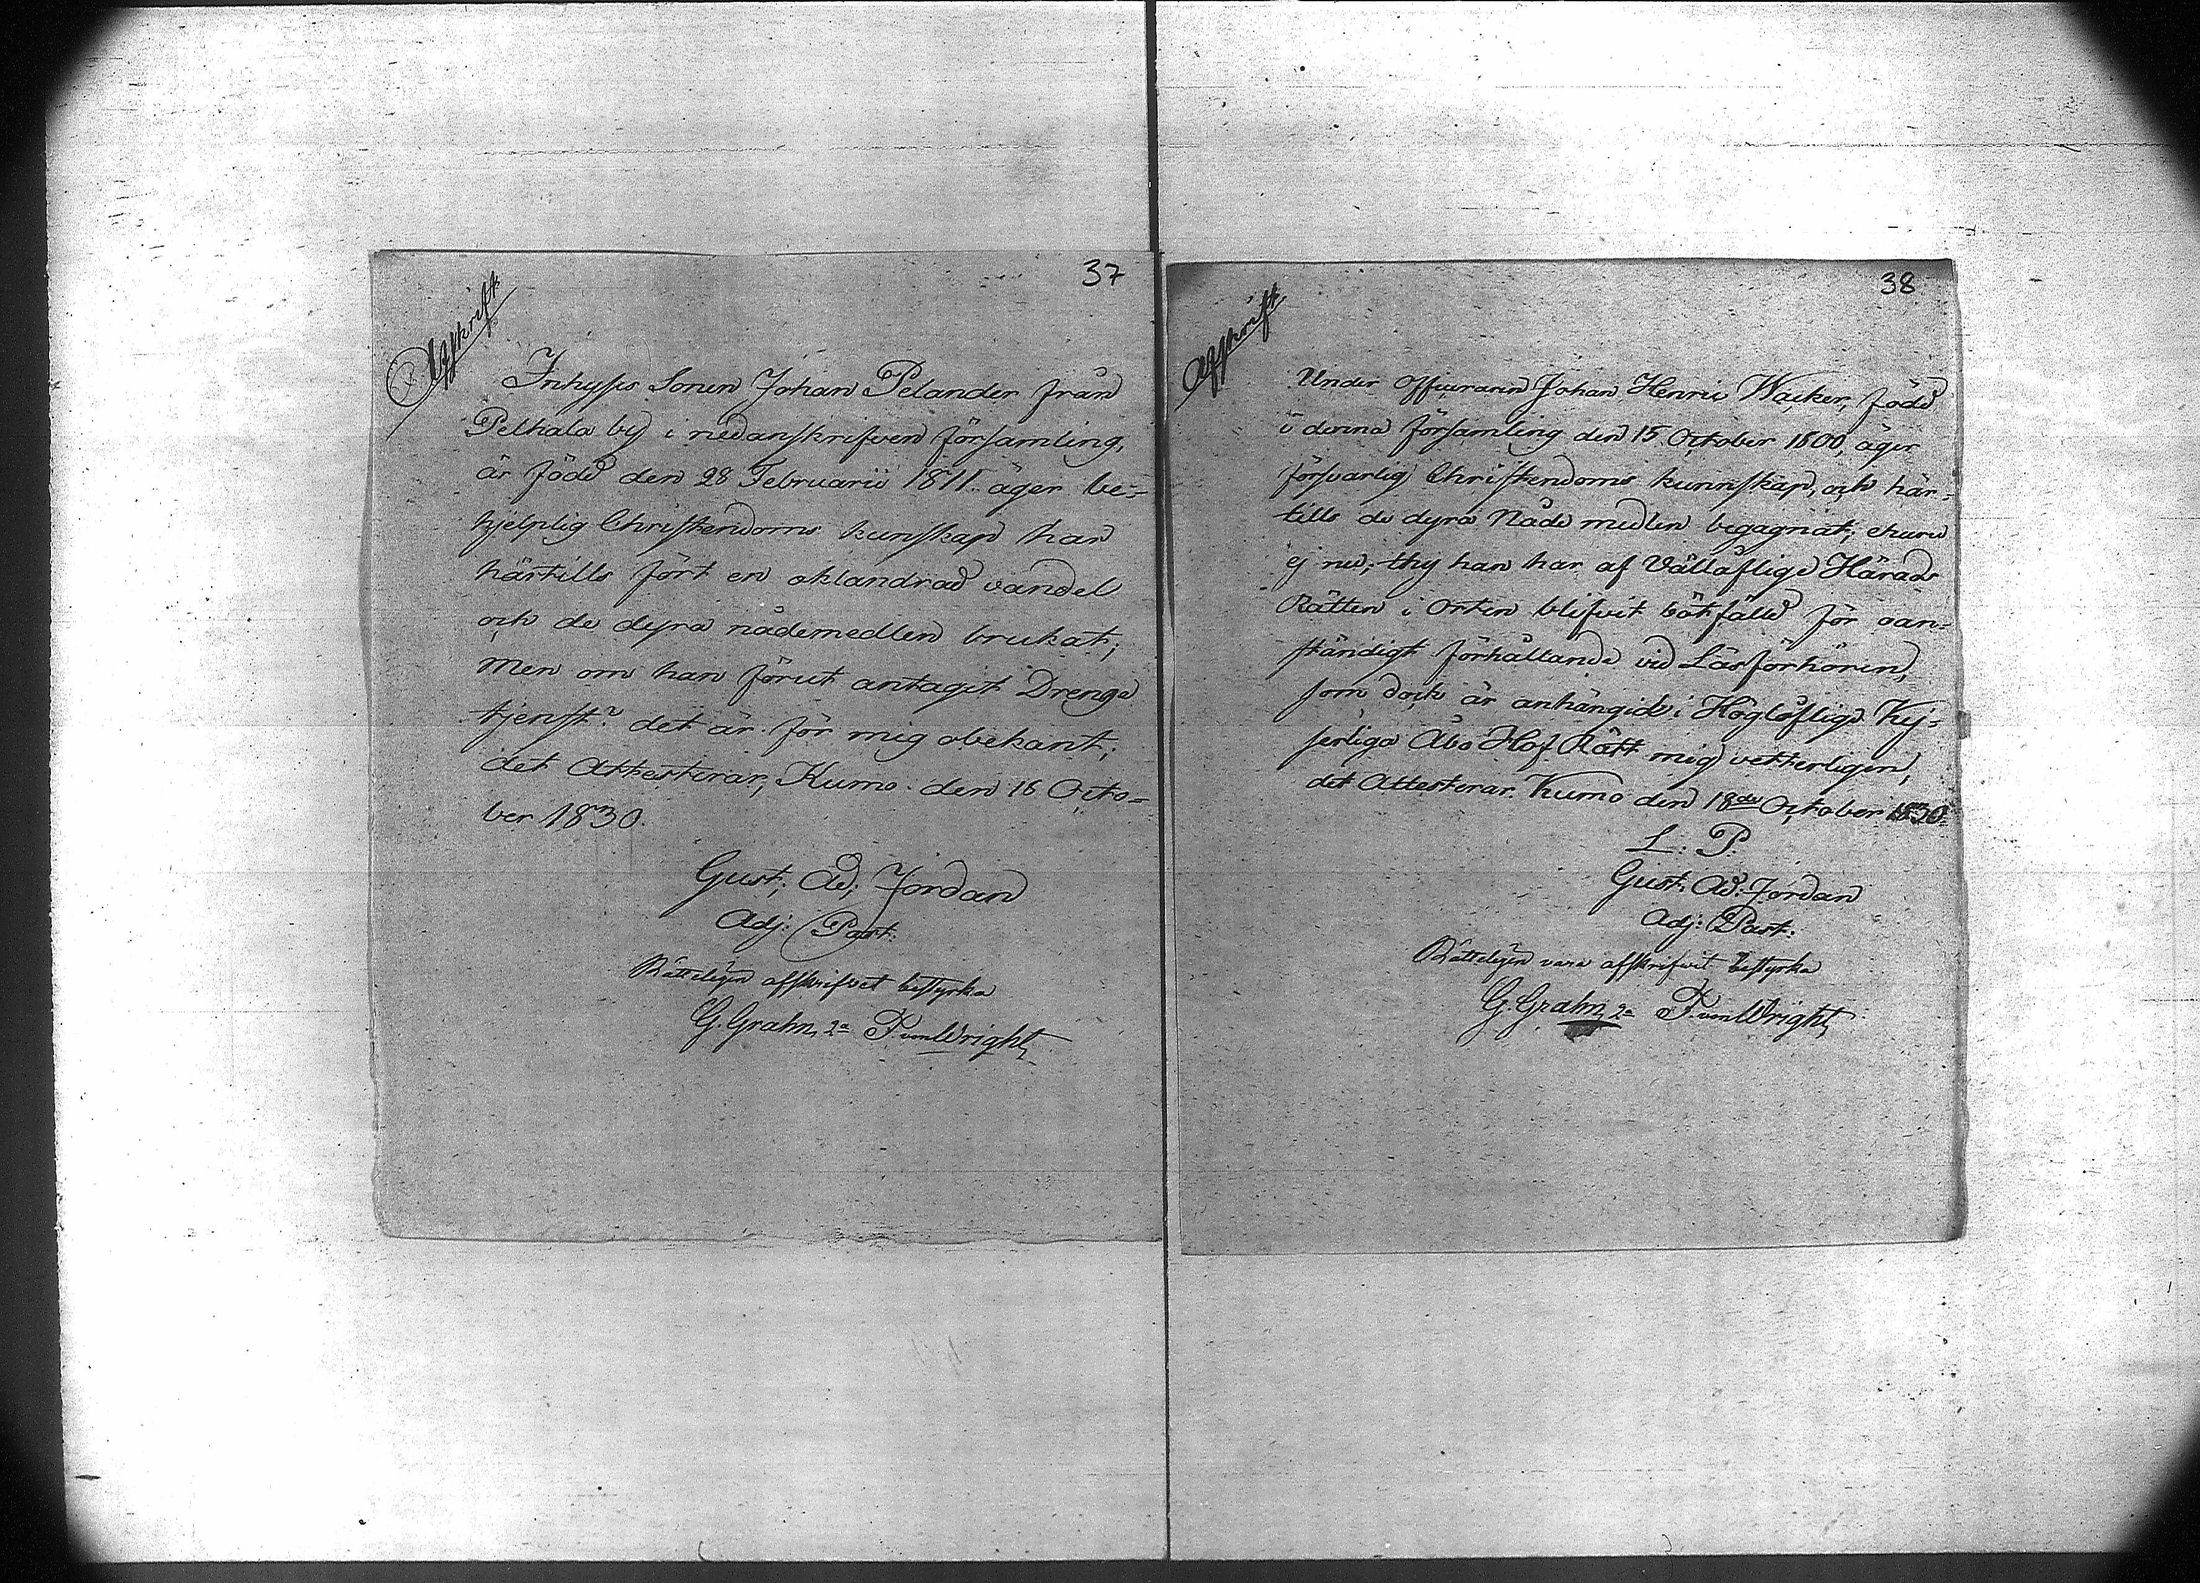 37
Afskrift
Inhyses Sonen Johan Pelander från
Pelhala by i nedanskrifven församling,
är född den 28 Februarii 1811. äger be-
hjelplig Christendoms kunskap har
härtills fört en oklandrad vandel
och de dyra nådemedlen brukat;
Men om han förut antagit Drenge
tjenst? det är för mig obekant;
det Attesterar; Kumo den 16 Octo-
ber 1830.
Gust. Ad. Jordan
Adj: Past.
Rätteligen afskrifvet bestyrka
G. Grahn P. von Wright
38
Afskrift
Under Officeraren Johan Henric Wacker, född
i denna församling den 15 October 1800, äger
försvarlig Christendoms kunnskap, och här-
tills de dyra Nåde medlen begagnat; ehuru
ej nu; thy han har af Vällåflige Härads
Rätten i Orten blifvit bötfälld för oan-
ständigt förhållande vid Läsförhören,
som dock är anhängidt i Höglåflige Kej-
serliga Åbo Hof Rätt mig vetterligen,
det Attesterar. Kumo den 18de October 1830.
L. P.
Gust. Ad: Jordan
Adj: Past.
Rätteligen vara afskrifvit bestyrka
G. Grahn P. von Wright